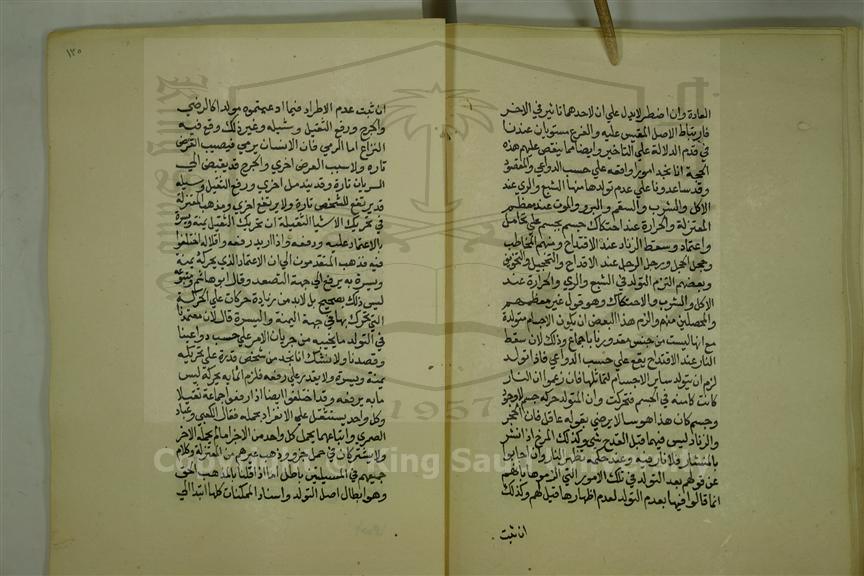 العادة وان اضطر لا يدل على ان لاحدهما تاثير في الاخر
فارتباط الاصل المقيس عليه والفرع مستويان عندنا
في عدم الدلالة على التاثير وايضا مما ينقض عليهم هذه
الحجة انا نجد امورا واقعة على حسب الدواعي والمقصود
وقد ساعدونا على عدم تولدها منها الشبع والري عند
الاكل والشرب والسقم والبرء والموت عند معظم
المعتزلة والحرارة عند احتكاك جسم بجسم على تحامل
واعتماد وسقط الزناد عند الاقتداح وفهم المخاطب
وخجل الخجل ووجل الوجل عند الافهام والتخجيل والتخويف
وبعضهم التزم التولد في الشبع والري والحرارة عند
الاكل والشرب والاحتكاك وهو قول غير معظمهم
والمحصلين منهم والزم هذا البعض ان يكون الاجسام متولدة
مع انها ليست من جنس مقدورنا باجماع وذلك لان سقط
النار عند الاقتداح يقع على حسب الدواعي فاذا تولد
لزم ان يتولد ساير الاجسام لتماثلها فان زعموا ان النار
كانت كامنة في الجسم فتحركت وان المتولد حركة جسم لا وجود
وجسم كان هذا هوسا لا يرضى بقوله عاقل فان الحجر
والزناد ليس فيهما قبل القدح شي وكذلك المرخ اذا نشر
بالمنشار لا نار فيه وعند حكه تظهر النار وان اجابوا
عن قولهم بعد التولد في تلك الامور التي الزموها بانهم
انما قالوا فيها بعدم التولد لعدم اطرادها قيل لهم وكذلك
ان ثبت
١٢٥
ان ثبت عدم الاطراد فيما ادعيتموه مولدا كالرمي
والجرح ورفع الثقيل وشيله وغير ذلك وقع فيه
النزاع اما الرمي فان الانسان يرمي فيصيب الغرض
تارة ولا يصيب الغرض اخرى والجرح قد يفضي الى
السريان تارة وقد يندمل اخرى ورفع الثقيل وشيله
قد يقع للشخص تارة ولا يقع اخرى ومذهب المعتزلة
في تحريك الاشيا الثقيلة ان تحريك الثقيل يمنة ويسرة
بالاعتماد عليه ودفعه واذا اريد رفعه واقلاله اختلفوا
فيه فذهب المتقدمون الى ان الاعتماد الذي يحركه يمنة
ويسرة به يرفع الى جهة التصعد وقال ابو هاشم ومتبعوه
ليس ذلك بصحيح بل لابد من زيادة حركات على الحركة
التي تحرك بها في جهة اليمنة واليسرة قال لان معتمدنا
في التولد ما يجيبه من جريان الامر على حسب دواعينا
وقصدنا ولا نشك انا نجد من شخص قدرة على تحريكه
يمنة ويسرة ولا يقدر على رفعه فلزم ان ما به يحركه ليس
ما به يرفعه وقد اختلفوا ايضا اذا رفعوا جماعة ثقيلا
وكل واحد يستقل على الانفراد بحمله فقال الكعبي وعباد
الصمري واتباعهما يحمل كل واحد من الاجزا ما لم يحمله الاخر
ولا يشتركان في حمل جزء وذهب غيرهم من المعتزلة وكلام
جميعهم في المسيلتين باطل اما اذا قلنا بالمذهب الحق
وهو ابطال اصل التولد واسناد الممكنات كلها ابتدا الى
1957
Copyright © King Saud University